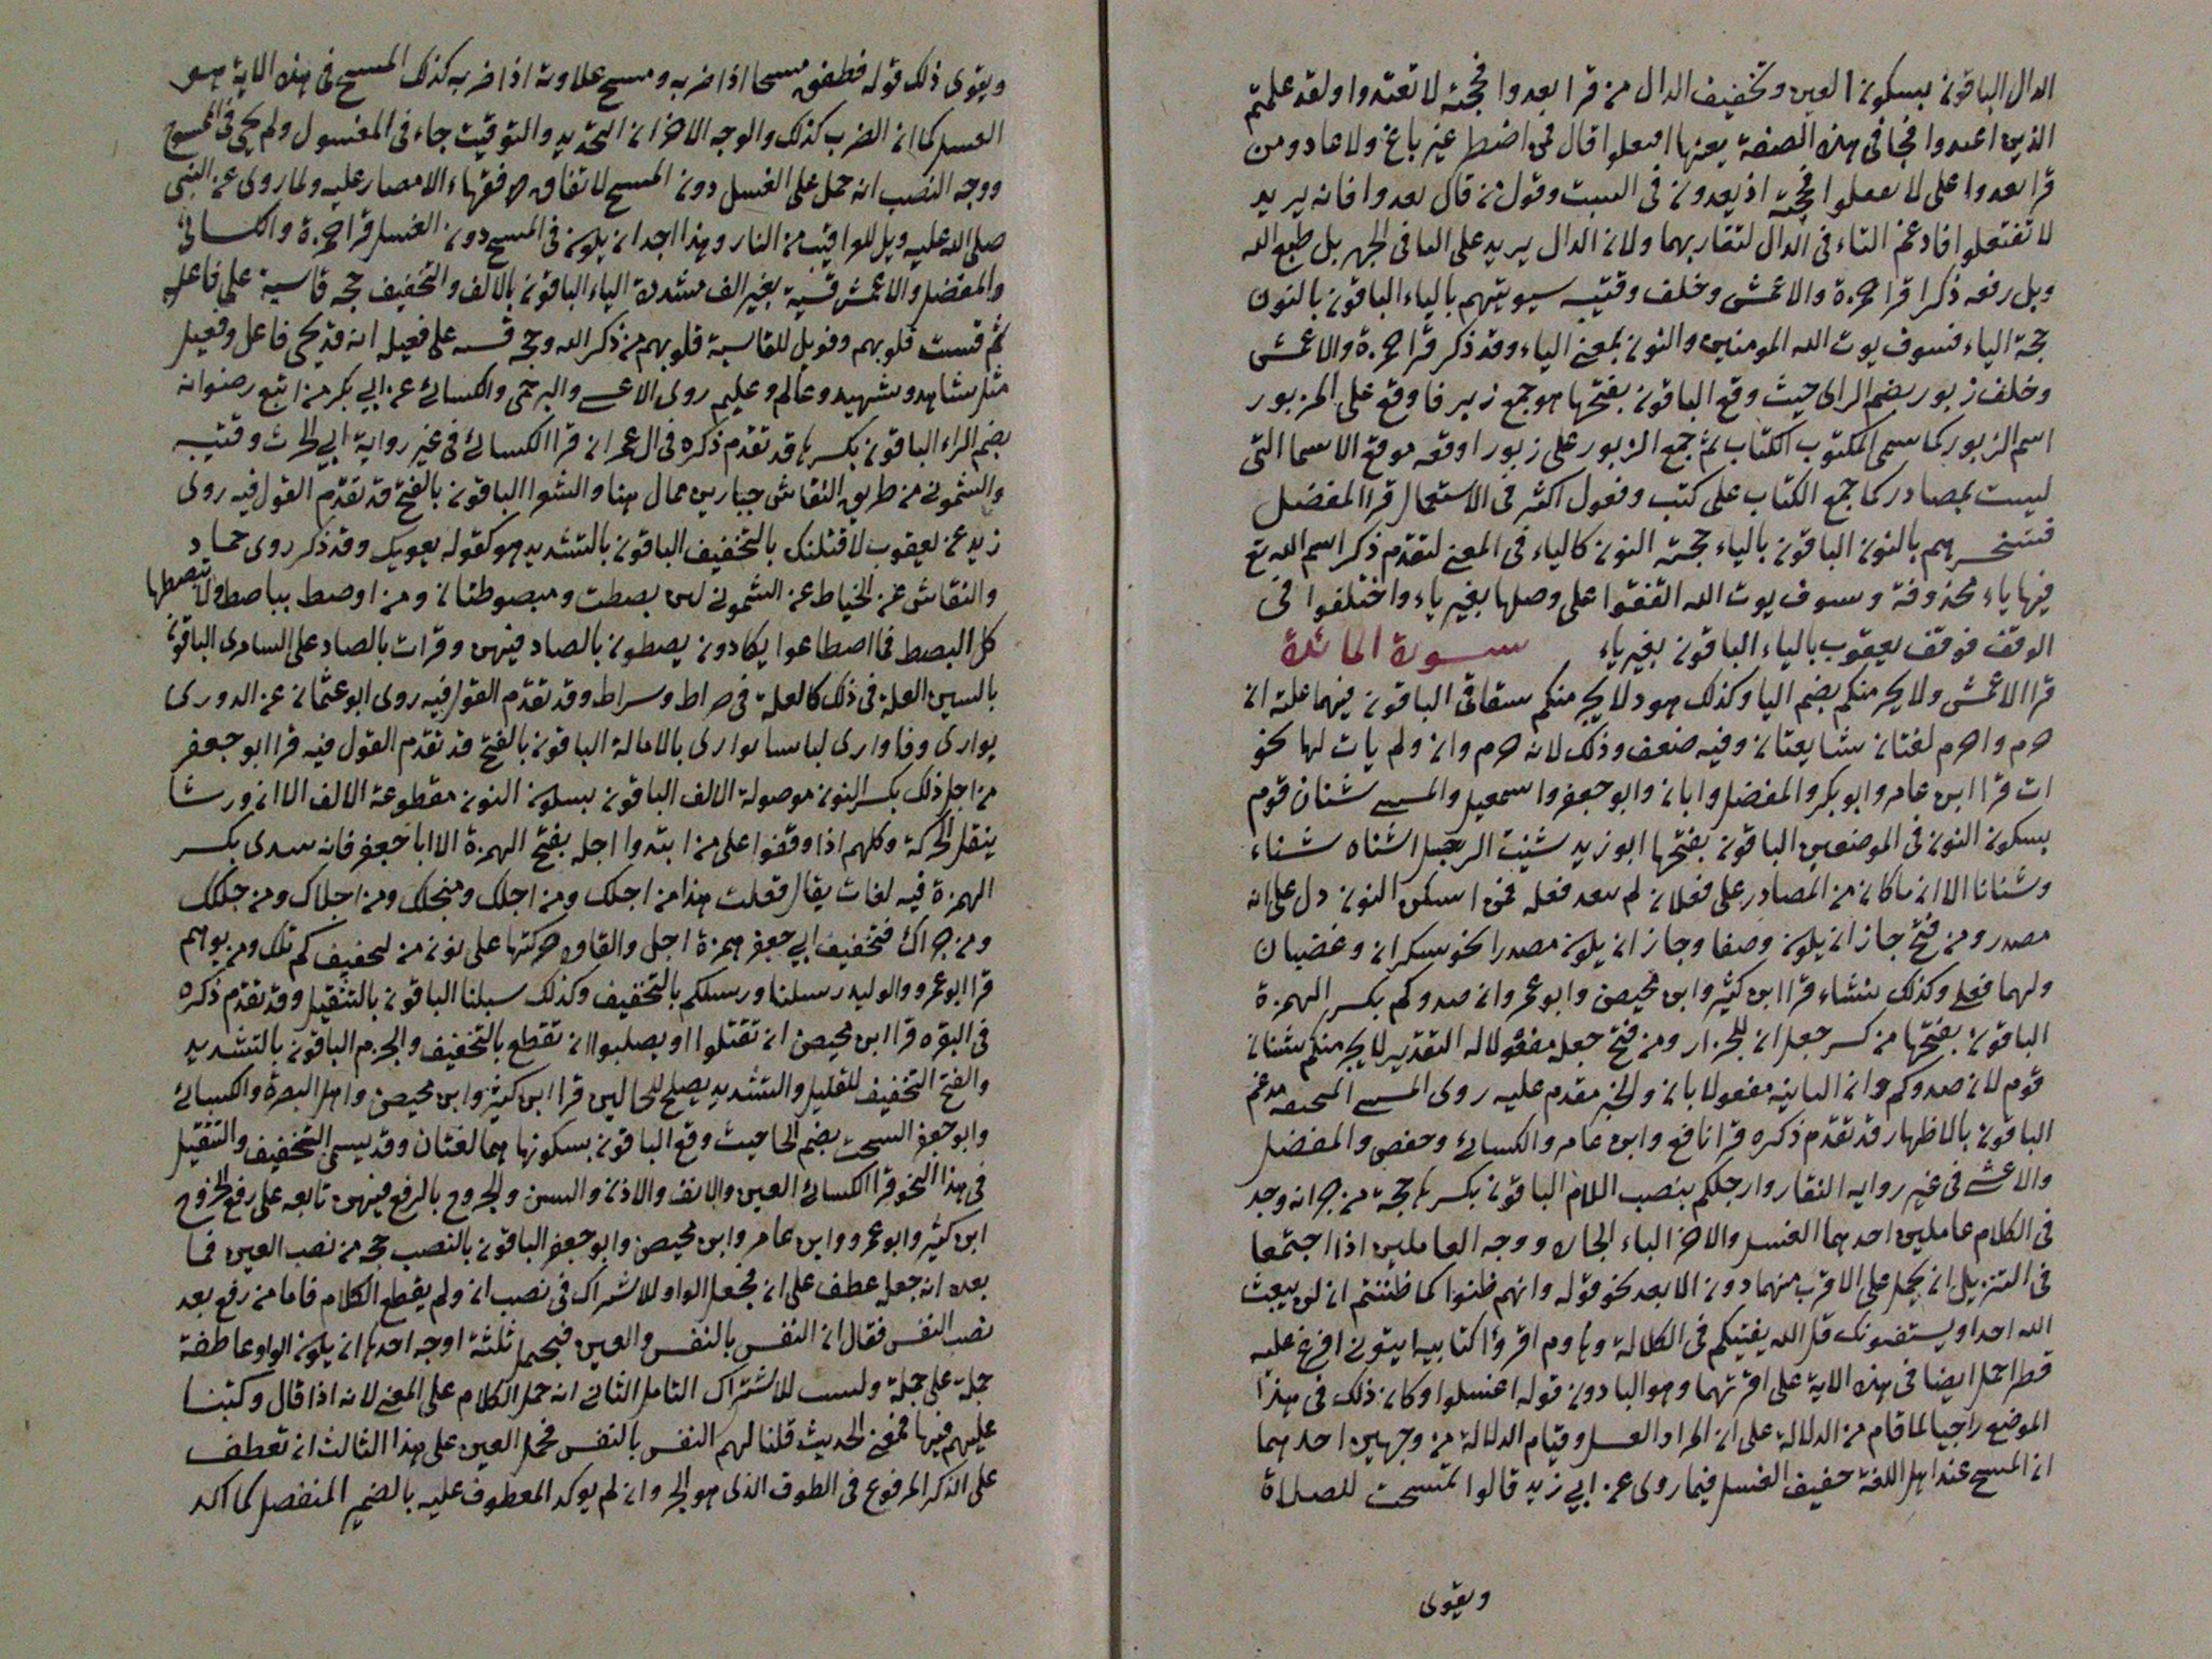 الدال الباقون بسكون العين وتخفيف الدال من قرا بعدوا فحجته لا تعتدوا ولقد علمتم
الذين اعتدوا فجا في هذه الصفة بعينها افتعلوا قال فمن اضطر غير باغ ولا عاد ومن
قرا بعدوا على لا تفعلوا فحجته اذ يعدون في السبت وقول من قال بعدوا فانه يريد
لا تفتعلوا فادغم التاء في الدال لتقاربهما ولان الدال يريد على التا في الجهر بل طبع الله
وبل رفعه ذكرا قرا حمزة والاعمش وخلف وقتيبه سيوتيهم بالياء الباقون بالنون
حجة الياء فسوف يوت الله المومنين والنون بمعنى الياء وقد ذكر قرا حمزة والاعمش
وخلف زبور بضم الراى حيث وقع الباقون بفتحها هو جمع زبر فاوقع على المزبور
اسم الزبور كما سمى المكتوب الكتاب ثم جمع الزبور على زبور اوقعه موقع الاسما التى
ليست بمصادر كما جمع الكتاب على كتب وفعول اكثر في الاستعمال قرا المفضل
فسنحشرهم بالنون الباقون بالياء حجته النون كالياء في المعنى لتقدم ذكر اسم الله تع
فيها ياء محذوفة وسوف يوت الله اتفقوا على وصلها بغير ياء واختلفوا في
الوقف فوقف يعقوب بالياء الباقون بغير ياء سورة المائدة
قرا الاعمش ولا يجرمنكم بضم اليا وكذلك هود لا يجرمنكم شقاقى الباقون فيهما علة ان
جرم واجرم لغتان شايعتان وفيه ضعف وذلك لانه جرم وان ولم يات لها نحو
ات قرا ابن عامر وابو بكر والمفضل وابان وابو جعفر واسمعيل والمسيبى شنان قوم
بسكون النون في الموضعين الباقون بفتحها ابو زيد شنيت الرجل اشناه شناء
وشنانا الا ان ما كان من المصادر على فعلان لم يتعد فعله فمن اسكن النون دل على انه
مصدر ومن فتح جاز ان يكون وصفا وجاز ان يكون مصدرا نحو سكران وغضبان
ولهما فعلى وكذلك شنشاء قرا ابن كثير وابن محيصن وابو عمرو ان صدوكم بكسر الهمزة
الباقون بفتحها من كسر جعل ان للجزار ومن فتح جعله مفعولا له التقدير لا يجرمنكم شنان
قوم لان صدوكم وان الثانيه مفعولا بان والخبر مقدم عليه روى المسيبى المنخنقه مدغم
الباقون بالاظهار قد تقدم ذكره قرا نافع وابن عامر والكسائى وحفص والمفضل
والاعشى في غير روايه النقار وارجلكم بنصب اللام الباقون بكسرها حجة من جر انه وجد
في الكلام عاملين احدهما الغسل والاخر الباء الجارة ووجه العاملين اذا اجتمعا
في التنزيل ان يحمل على الاقرب منهما دون الابعد نحو قوله وانهم ظنوا كما ظننتم ان لن يبعث
الله احدا ويستفتونك قل الله يفتيكم في الكلالة وهاوم اقرؤا كتابيه ايتونى افرغ عليه
قطرا حمل ايضا في هذه الاية على اقربهما وهو البا دون قوله اغسلوا وكان ذلك في هذا
الموضع راجيا لما قام من الدلالة على ان المراد الغسل وقيام الدلالة من وجهين احدهما
ان المسح عند اهل اللغة خفيف الغسل فيما روى عن ابي زيد قالوا تمسحت للصلاة
ويقوى
ويقوى ذلك قوله فطفق مسحا اذا ضربه ومسح علاوته اذا ضربه كذلك المسح في هذه الاية هو
الغسل كما ان الضرب كذلك والوجه الاخر ان التحديد والتوقيت جاء في المغسول ولم يجى في الممسوح
ووجه النصب انه حمل على الغسل دون المسح لاتفاق فقهاء الامصار عليه ولما روى عن النبى
صلى الله عليه ويل للعراقيب من النار وهذا اجد ان يكون في المسح دون الغسل قرا حمزة والكسائى
والمفضل والاعمش قسية بغير الف مشددة الياء الباقون بالالف والتخفيف حجه قاسية على فاعله
ثم قست قلوبهم وفويل للقاسية قلوبهم من ذكر الله وحجه قسيه على فعيله انه قد يجى فاعل وفعيل
مثل شاهد وشهيد وعالم وعليم روى الاعشى والبرجمى والكسائى عن ابي بكر من اتبع رضوانه
بضم الراء الباقون بكسرها قد تقدم ذكره في ال عمران قرا الكسائى في غير رواية ابي الحرث وقتيبه
والشمونى من طريق النقاش جبارين ممال هنا والشعرا الباقون بالفتح قد تقدم القول فيه روى
زيد عن يعقوب لاقتلنك بالتخفيف الباقون بالتشديد هو كقوله يعويك وقد ذكر روى حماد
والنقاش عن الخياط عن الشمونى لين بصطت ومبصوطتان ومن اوصط بباصط ولا تبصطها
كل البصط فما اصطاعوا يكادون يصطون بالصاد فيهن وقرات بالصاد على السامرى الباقون
بالسين العلة في ذلك كالعلة في صراط وسراط وقد تقدم القول فيه روى ابو عثمان عن الدورى
يوارى وفاوارى لباسا يوارى بالامالة الباقون بالفتح قد تقدم القول فيه قرا ابو جعفر
من اجل ذلك بكسر النون موصولة الالف الباقون بسكون النون مقطوعة الالف الا ان ورشا
ينقل الحركة وكلهم اذا وقفوا على من ابتدوا اجله بفتح الهمزة الا ابا جعفر فانه يبتدى بكسر
الهمزة فيه لغات يقال فعلت هذا من اجلك ومن اجلك ومنجلك ومن اجلاك ومن جللك
ومن جراك فتخفيف ابي جعفر همزة اجل والقاوه حركتها على نون من لتخفيف كم تلك ومن بوهم
قرا ابو عمرو والوليد رسلنا ورسلكم بالتخفيف وكذلك سبلنا الباقون بالتثقيل وقد تقدم ذكره
في البقره قرا ابن محيصن ان تقتلوا او يصلبوا ان تقطع بالتخفيف والجزم الباقون بالتشديد
والفتح التخفيف للقليل والتشديد يصلح للحالين قرا ابن كثير وابن محيصن واهل البصرة والكسائى
وابو جعفر السحت بضم الحا حيث وقع الباقون بسكونها هما لغتان وقد يسمى التخفيف والتثقيل
في هذا النحو قرا الكسائى العين والانف والاذن والسن والجروح بالرفع فيهن تابعه على رفع الجروح
ابن كثير وابو عمرو وابن عامر وابن محيصن وابو جعفر الباقون بالنصب حجه من نصب العين فما
بعده انه جعله عطف على ان فجعل الواو للاشتراك في نصب ان ولم يقطع الكلام فاما من رفع بعد
نصب النفس فقال ان النفس بالنفس والعين فيحمل ثلثة اوجه احدها ان يكون الواو عاطفة
جملة على جملة وليست للاشتراك التامل الثانى انه حمل الكلام على المعنى لانه اذا قال وكتبنا
عليهم فيها فمعنى الحديث قلنا لهم النفس بالنفس فحمل العين على هذا الثالث ان تعطف
على الذكر المرفوع في الطوف الذى هو الجر وان لم يوكد المعطوف عليه بالضمير المنفصل كما اكد